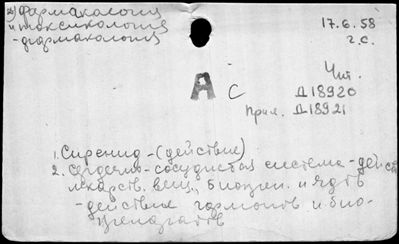 фармакология
и токсикология
-фармакология
17.6.58
г.с.
А с
Чит.
Д18920
Прил. Д18921
1. Сиренид-(действие)
2. Сердечно-сосудистая система-действ.
лекарств. вещ., биоген. и ядов
-действие гормонов и био-
препаратов